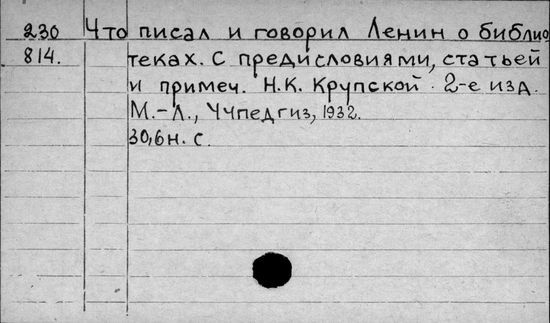 230 Что писал и говорил Ленин о библио
814. теках. С предисловиями, статьей
и примеч. Н.К. Крупской. 2-е изд.
М.-Л., Учпедгиз, 1932.
30,6н. с.